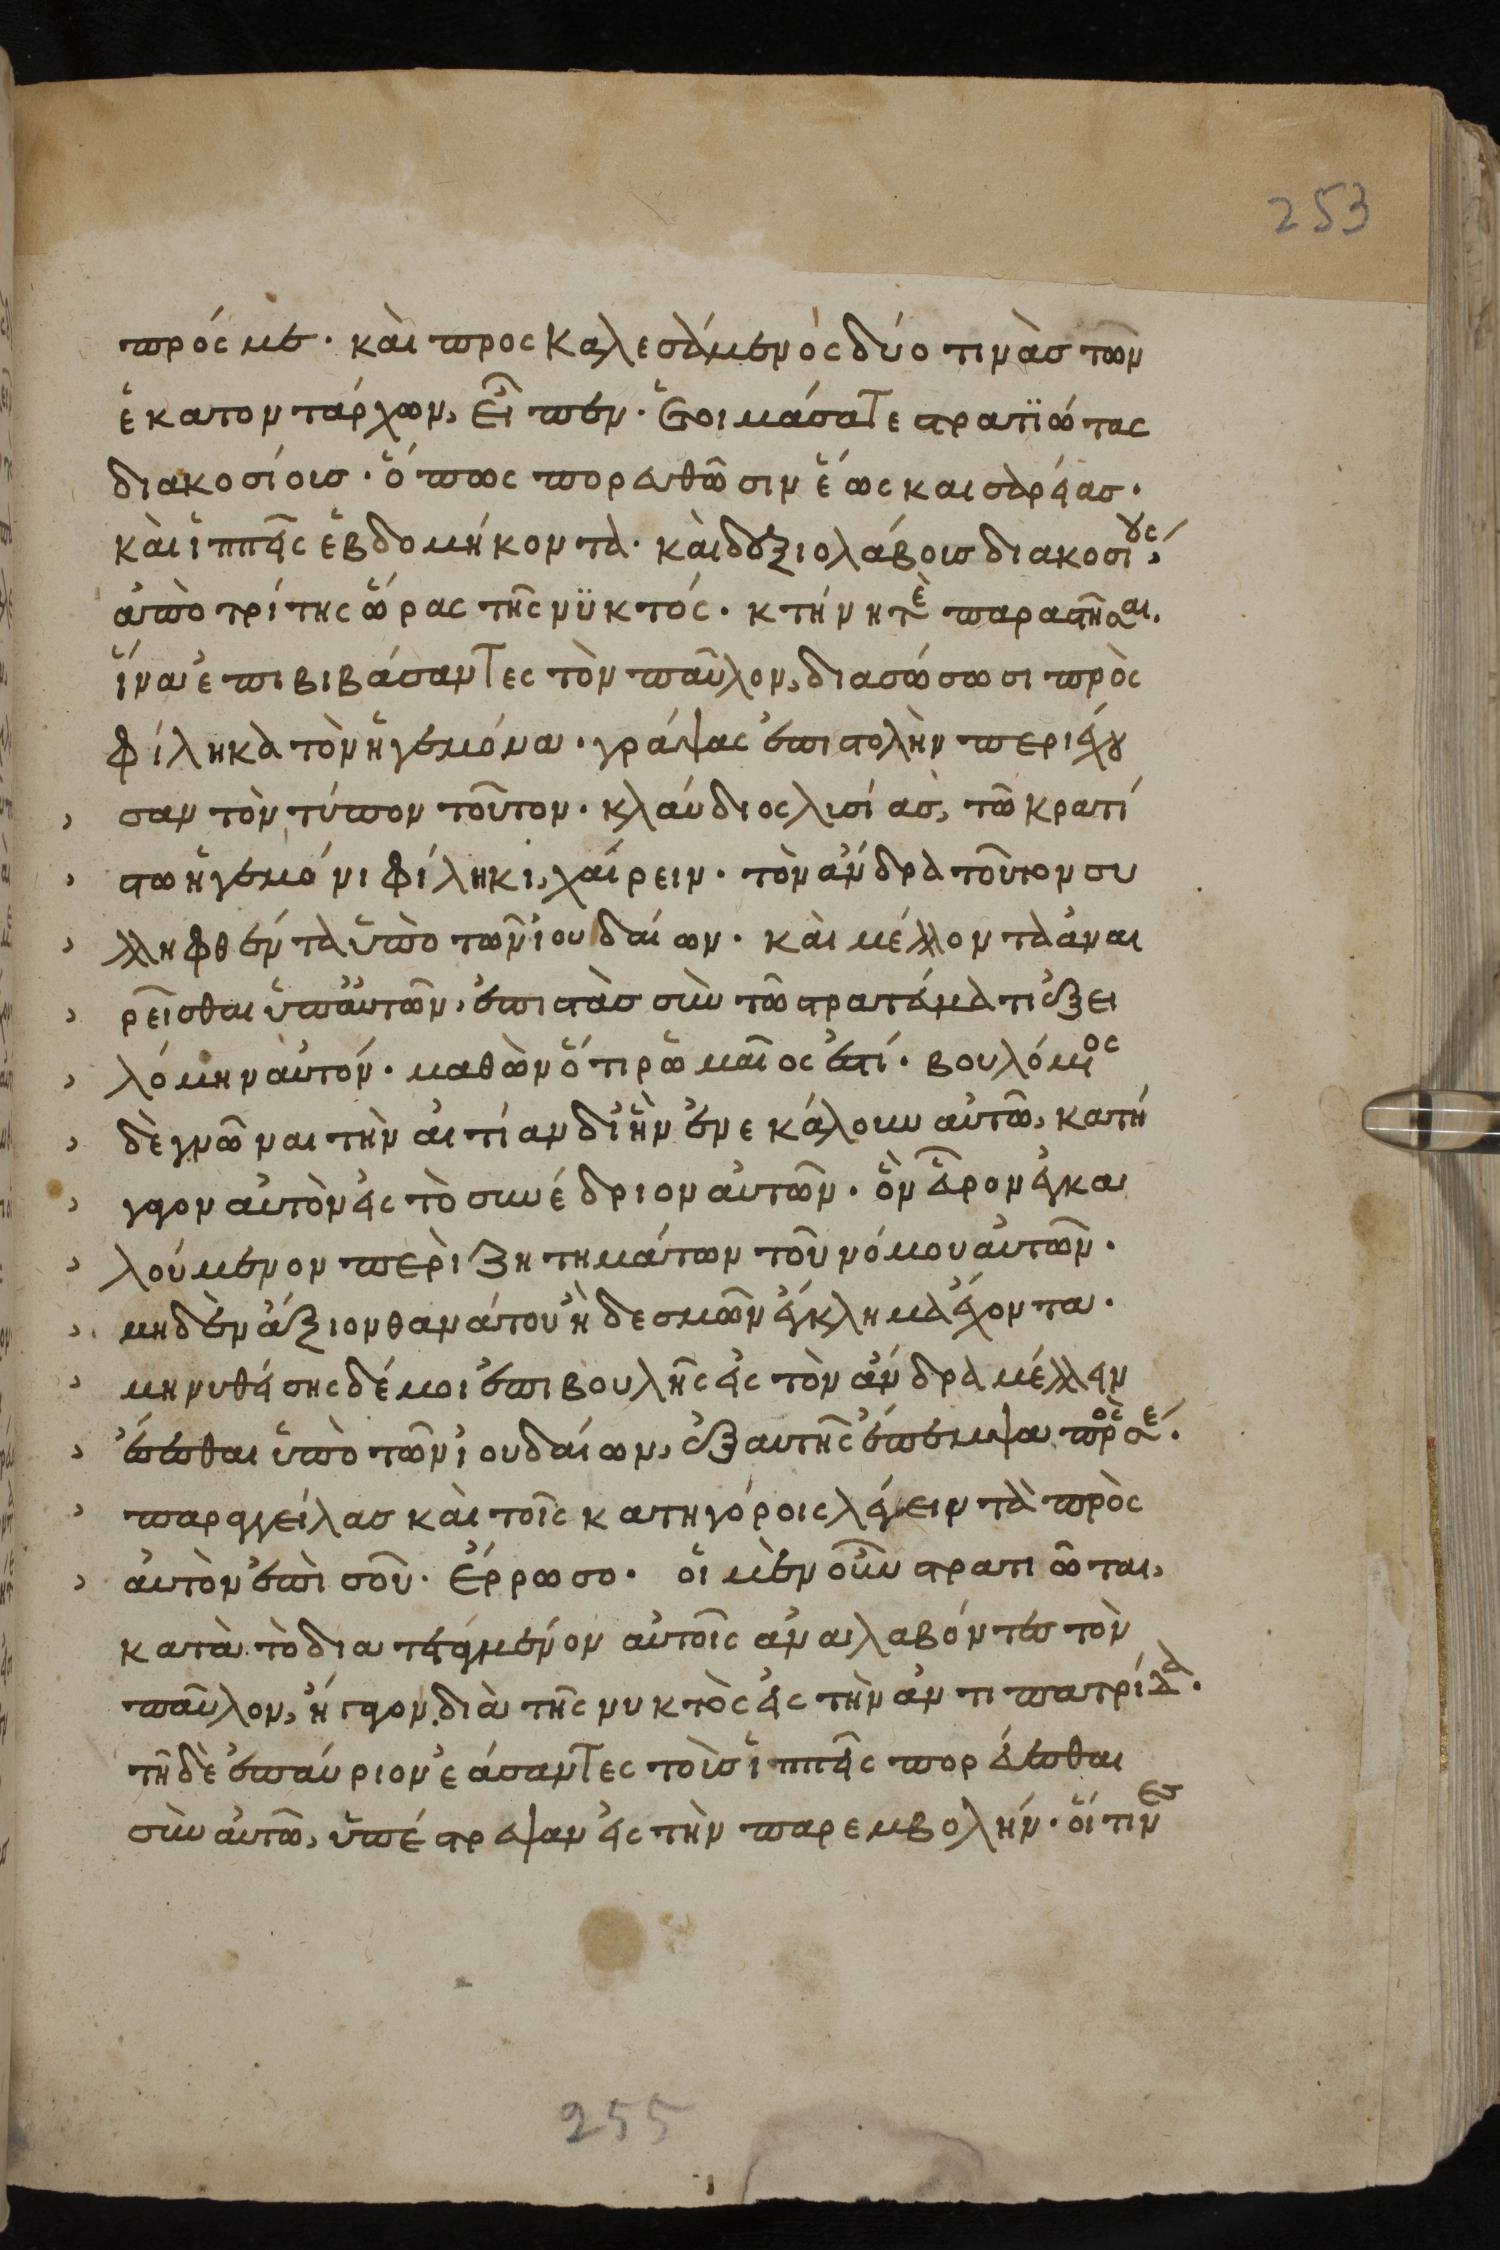 253
πρός με· καὶ προσκαλεσάμενὸς δύο τινὰς τῶν
ἑκατοντάρχων, εἶπεν· ἑτοιμάσατε στρατϊώτας
διακοσίους· ὅπως πορευθῶσιν ἕως καισαρείας·
καὶ ἱππεῖς ἑβδομήκοντα· καὶ δεξιολάβους διακοσίους,
ἀπὸ τρίτης ὥρας τῆς νϋκτός· κτήνητὲ παραστῆσαι.
ἵνα ἐπιβιβάσαντες τὸν παῦλον, διασώσωσι πρὸς
φίληκα τὸν ἡγεμόνα· γράψας ἐπιστολὴν περιέχου
σαν τὸν τύπον τοῦτον· κλαύδιος λυσίας, τῶ κρατί
στω ἡγεμόνι φίληκι, χαίρειν· τὸν ἄνδρα τοῦτον συ
λληφθέντα ὑπὸ τῶν ἰουδαίων· καὶ μέλλοντα ἀναι
ρεῖσθαι ὑπ' αὐτῶν, ἐπιστὰς σὺν τῶ στρατεύματι ἐξει
λόμην αὐτόν· μαθὼν ὅτι ῥωμαῖος ἐστί· βουλόμενος
δὲ γνῶναι τὴν αἰτίαν δι' ἣν ἐνεκάλουν αὐτῶ, κατή
γαγον αὐτὸν εἰς τὸ συνέδριον αὐτῶν· ὃν εὗρον ἐγκα
λούμενον περὶ ζητημάτων τοῦ νόμου αὐτῶν·
μηδὲν ἄξιον θανάτου ἢ δεσμῶν ἔγκλημα ἔχοντα·
μηνυθείσης δέ μοι ἐπιβουλῆς εἰς τὸν ἄνδρα μέλλειν
ἔσεσθαι ὑπὸ τῶν ἰουδαίων, ἐξαυτῆς ἔπεμψα πρὸς σέ·
παραγγείλας καὶ τοῖς κατηγόροις λέγειν τὰ πρὸς
αὐτὸν ἐπὶ σοῦ· ἔρρωσο· οἱ μὲν οὖν στρατιῶται,
κατὰ τὸ διατεταγμένον αὐτοῖς ἀναλαβόντες τὸν
παῦλον, ἤγαγον διὰ τῆς νυκτὸς εἰς τὴν ἀντιπατρίδα·
τῆ δὲ ἐπαύριον ἐάσαντες τοὺς ἱππεῖς πορεύεσθαι
σὺν αὐτῶ, ὑπέστρεψαν εἰς τὴν παρεμβολήν· οἵτινες
255